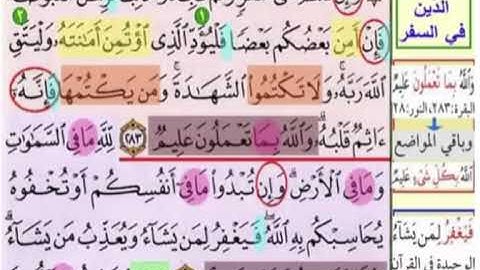 فَإِنْ أَمِنَ بَعْضُكُم بَعْضًا فَلْيُؤَدِّ الَّذِى اؤْتُمِنَ أَمَانَتَهُۥ وَلْيَتَّقِ
اللَّهَ رَبَّهُۥ ۗ وَلَا تَكْتُمُوا الشَّهَادَةَ ۚ وَمَن يَكْتُمْهَا فَإِنَّهُۥ
ءَاثِمٌ قَلْبُهُۥ ۗ وَاللَّهُ بِمَا تَعْمَلُونَ عَلِيمٌ ٢٨٣ لِّلَّهِ مَا فِى السَّمَاوَاتِ
وَمَا فِى الْأَرْضِ ۗ وَإِن تُبْدُوا مَا فِى أَنفُسِكُمْ أَوْ تُخْفُوهُ
يُحَاسِبْكُم بِهِ اللَّهُ ۖ فَيَغْفِرُ لِمَن يَشَاءُ وَيُعَذِّبُ مَن يَشَاءُ ۗ
الدين
في السفر
وَاللَّهُ بِمَا تَعْمَلُونَ عَلِيمٌ
البقرة:٢٨٣، النور:٢٨
وباقي المواضع
وَاللَّهُ بِكُلِّ شَىْءٍ عَلِيمٌ
فَيَغْفِرُ لِمَن يَشَاءُ
الوحيدة في القرآن